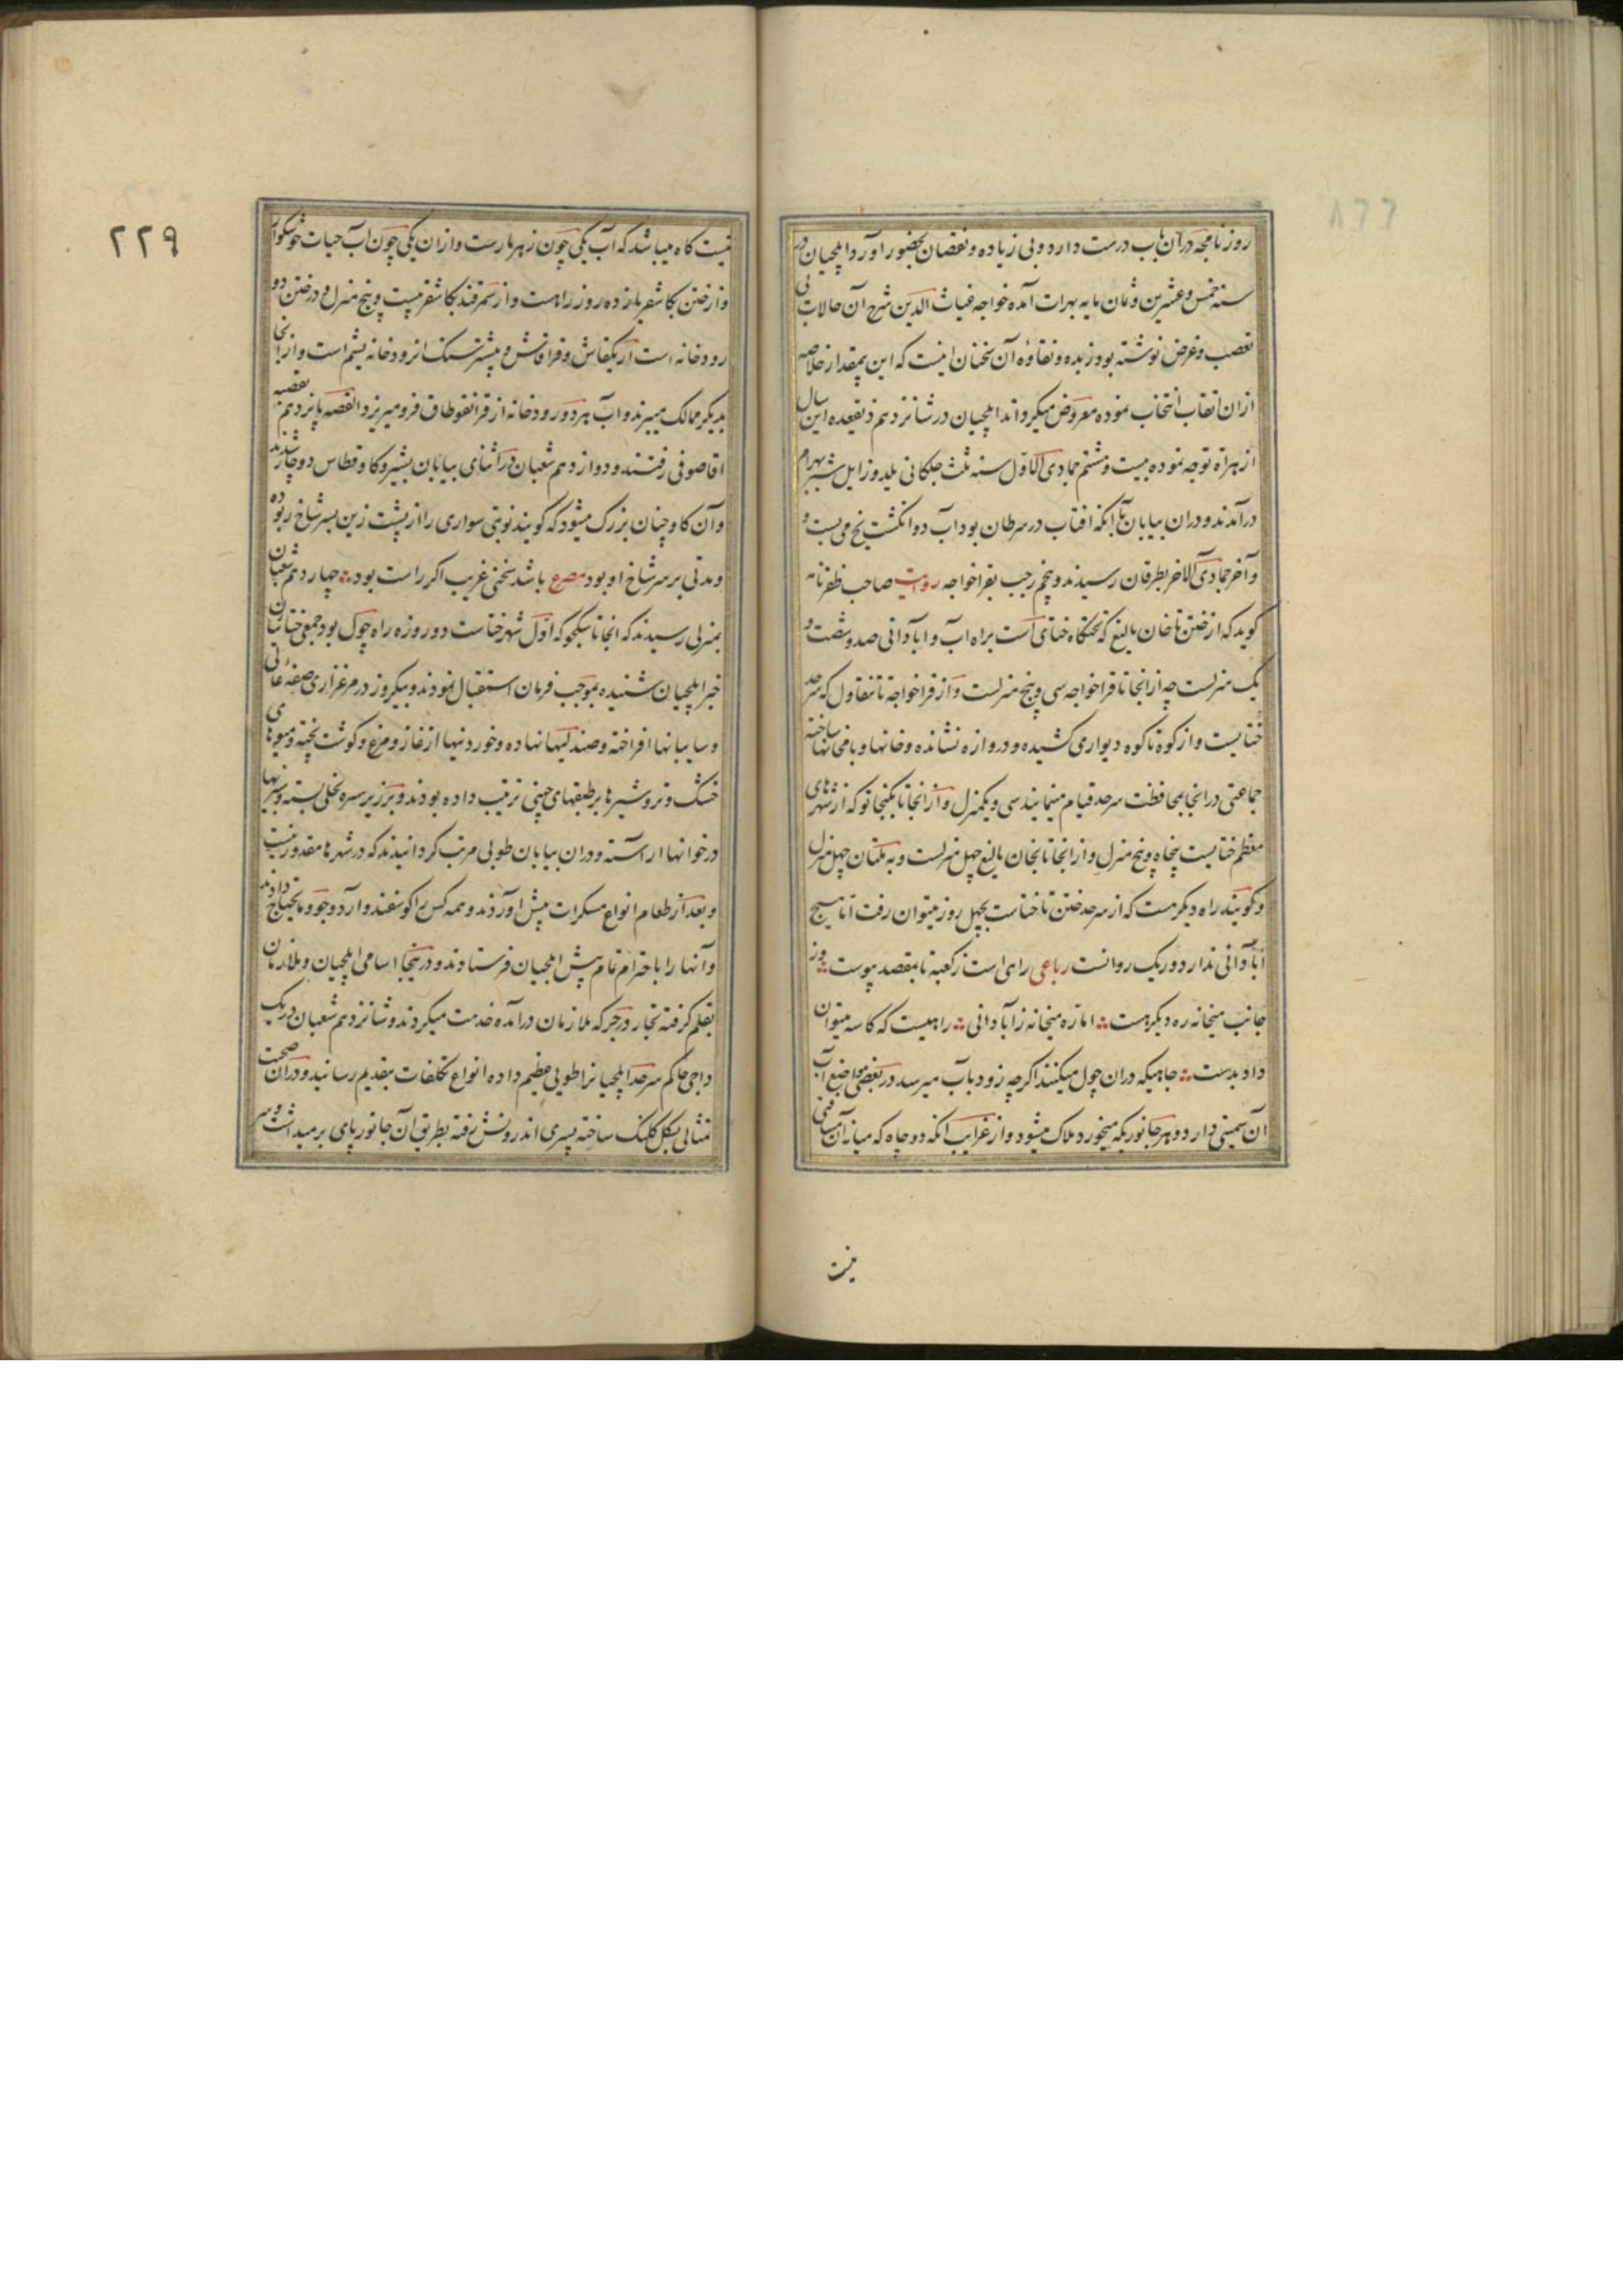 روزنامجه در آن باب درست دارد و بی زیاده و نقصان بحضور آورد ایلچیان در
سنه خمس و عشرین و ثمان مایه بهرات آمده خواجه غیاث الدین شرح آن حالات بی
تعصب و غرض نوشته بود زبده و نقاوه آن سخنان اینست که این بمقدار خلاصه
ازان انتخاب نموده معروض میکرداند ایلچیان در شانزدهم ذیقعده این سال
از هراة توجه نموده بیست و هشتم جمادی الاول سنه ثلث جلکانی یلدوز ایل شیر بهرام
درآمدند و دران بیابان باآنکه افتاب در سرطان بود آب دو انکشت یخ می بست و
و آخر جمادی الاخر بطرقان رسیدند و پنجم رجب بقراخواجه روایت صاحب ظفرنامه
کوید که از ختن تا خان بالیغ که تختکاه ختای است براه آب و ابادانی صد و شصت و
یک منزلست چه از انجا تا قراخواجه سی و پنج منزلست و از قراخواجه تا تنقاول که سرحد
ختایست و از کوه تا کوه دیواری کشیده و دروازه نشانده و خانها و یامخانها ساخته
جماعتی در انجا بمحافظت سرحد قیام مینمایند سی و یکمنزل و از انجا تا بکنجانو که از شهرهای
معظم ختایست پنجاه و پنج منزل و از انجا تا بخان بالیغ چهل منزلست و به نمتان چهل منزل
و کویند راه دیکر هست که از سرحد ختن تا ختاست بچهل روز میتوان رفت اما هیچ
آبادانی ندارد و ریک روانست رباعی راهی است زکعبه تا بمقصد پیوست وز
جانب میخانه ره دیکر هست اما ره میخانه ز آبادانی راهیست که کاسه میتوان
داد بدست چاهیکه دران چول میکنند اکرچه زود بآب میرسد در بعضی مواضع آب
آن سمیتی دارد و هر جانور یکه میخورد هلاک میشود و از غرایب انکه دو چاه که میانه آن مسافتی
نیست
۲۲۹
نیست کاه میباشد که آب یکی چون زهر مارست و ازان یکی چون آب حیات خوشکوار
و از ختن بکاشغر پانزده روز راهست و از سمرقند بکاشغر بیست و پنج منزل و در ختن دو
رودخانه است ارنکقاش و قراقاش و بیشتر سنک انرودخانه یشم است و از انجا
بدیکر ممالک میبرند و آب هر دو رودخانه از قرانقوطاق فرو میریزد القصه پانزدهم بقصبه
اقاصوفی رفتند و دوازدهم شعبان در اثنای بیابان بشیر و کاو قطاس دوچار شدند
و آن کاو چنان بزرک میشود که کویند نوبتی سواری را از پشت زین بسر شاخ ربوده
و مدتی بر سر شاخ او بود مصرع باشد سخنی غریب اکر راست بود چهاردهم شعبان
بمنزلی رسیدند که انجا تا سکجو که اول شهر ختاست دو روزه راه چول بود جمعی ختائیان
خبر ایلچیان شنیده بموجب فرمان استقبال نمودند و بیکروز در مرغزاری صفه عالی
و سایبانها افراخته و صندلیها نهاده و خوردنیها از غاز و مرغ و کوشت پخته و میوهای
خشک و تر و شیرها بر طبقهای چینی ترتیب داده بودند و بر زبر سره نخلی بسته و سبزیها
در خوانها اراسته و دران بیابان طویی مرتب کردانیدند که در شهرها مقدور نیست
و بعد از طعام انواع مسکرات پیش آوردند و همه کس را کوسفند و آرد و جو و مایحتاج دادند
و آنها را باحترام تمام پیش ایلچیان فرستاوند و در ینجا اسامی ایلچیان و ملازمان
بقلم کرفته تجار در جرکه ملازمان درآمده خدمت میکردند و شانزدهم شعبان در یک
داجی حاکم سرحد ایلچیانرا طویی عظیم داده انواع تکلفات بتقدیم رسانید و دران صحبت
تمثالی بشکل کلنک ساخته پسری اندرونش رفته بطریق آن جانور پای برمیداشت و سر